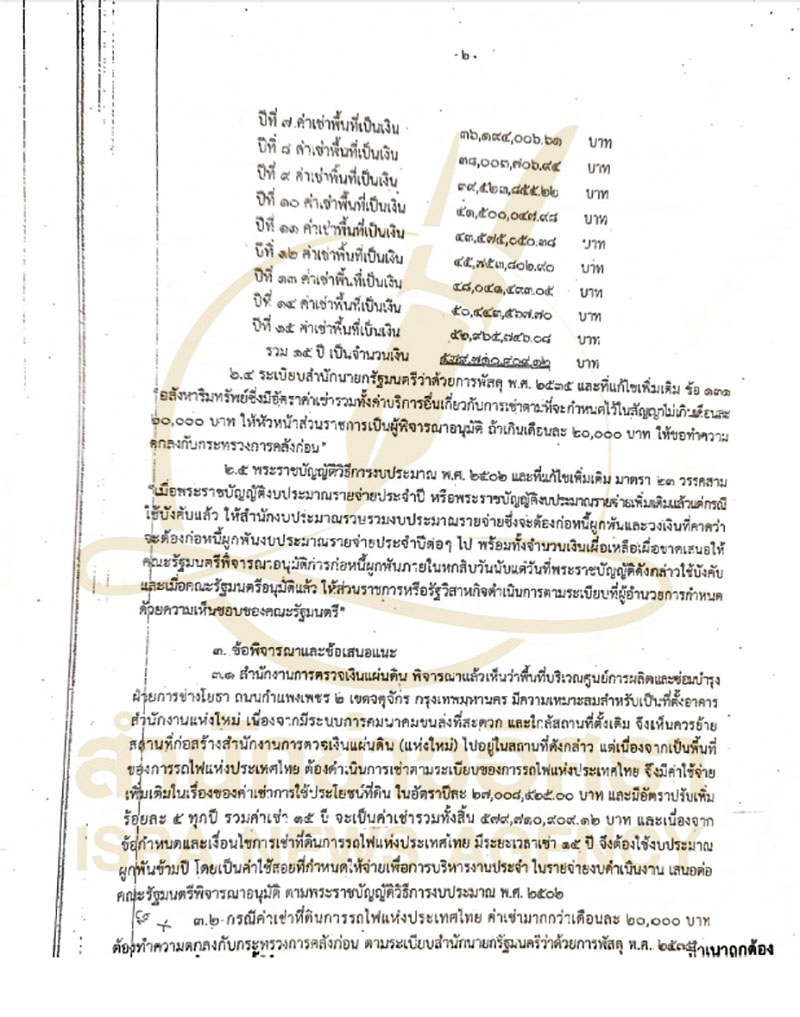 - ๒ -
ปีที่ ๗ ค่าเช่าพื้นที่เป็นเงิน ๓๖,๑๙๔,๐๐๖.๖๑ บาท
ปีที่ ๘ ค่าเช่าพื้นที่เป็นเงิน ๓๘,๐๐๓,๗๐๖.๙๔ บาท
ปีที่ ๙ ค่าเช่าพื้นที่เป็นเงิน ๓๙,๕๒๓,๘๕๕.๒๒ บาท
ปีที่ ๑๐ ค่าเช่าพื้นที่เป็นเงิน ๔๑,๕๐๐,๐๔๗.๙๘ บาท
ปีที่ ๑๑ ค่าเช่าพื้นที่เป็นเงิน ๔๓,๕๗๕,๐๕๐.๓๘ บาท
ปีที่ ๑๒ ค่าเช่าพื้นที่เป็นเงิน ๔๕,๗๕๓,๘๐๒.๙๐ บาท
ปีที่ ๑๓ ค่าเช่าพื้นที่เป็นเงิน ๔๘,๐๔๑,๔๙๓.๐๕ บาท
ปีที่ ๑๔ ค่าเช่าพื้นที่เป็นเงิน ๕๐,๔๔๓,๕๖๗.๗๐ บาท
ปีที่ ๑๕ ค่าเช่าพื้นที่เป็นเงิน ๕๒,๙๖๕,๗๔๖.๐๘ บาท
รวม ๑๕ ปี เป็นจำนวนเงิน ๕๗๙,๗๑๐,๙๐๙.๑๒ บาท
๒.๔ ระเบียบสำนักนายกรัฐมนตรีว่าด้วยการพัสดุ พ.ศ. ๒๕๓๕ และที่แก้ไขเพิ่มเติม ข้อ ๑๓๑
อสังหาริมทรัพย์ซึ่งมีอัตราค่าเช่ารวมทั้งค่าบริการอื่นเกี่ยวกับการเช่าตามที่จะกำหนดไว้ในสัญญาไม่เกินเดือนละ
๒๐,๐๐๐ บาท ให้หัวหน้าส่วนราชการเป็นผู้พิจารณาอนุมัติ ถ้าเกินเดือนละ ๒๐,๐๐๐ บาท ให้ขอทำความ
ตกลงกับกระทรวงการคลังก่อน"
๒.๕ พระราชบัญญัติวิธีการงบประมาณ พ.ศ. ๒๕๐๒ และที่แก้ไขเพิ่มเติม มาตรา ๒๓ วรรคสาม
"เมื่อพระราชบัญญัติงบประมาณรายจ่ายประจำปี หรือพระราชบัญญัติงบประมาณรายจ่ายเพิ่มเติมแล้วแต่กรณี
ใช้บังคับแล้ว ให้สำนักงบประมาณรวบรวมงบประมาณรายจ่ายซึ่งจะต้องก่อหนี้ผูกพันและวงเงินที่คาดว่า
จะต้องก่อหนี้ผูกพันงบประมาณรายจ่ายประจำปีต่อๆ ไป พร้อมทั้งจำนวนเงินเผื่อเหลือเผื่อขาดเสนอให้
คณะรัฐมนตรีพิจารณาอนุมัติการก่อหนี้ผูกพันภายในหกสิบวันนับแต่วันที่พระราชบัญญัติดังกล่าวใช้บังคับ
และเมื่อคณะรัฐมนตรีอนุมัติแล้ว ให้ส่วนราชการหรือรัฐวิสาหกิจดำเนินการตามระเบียบที่ผู้อำนวยการกำหนด
ด้วยความเห็นชอบของคณะรัฐมนตรี"
๓. ข้อพิจารณาและข้อเสนอแนะ
๓.๑ สำนักงานการตรวจเงินแผ่นดิน พิจารณาแล้วเห็นว่าพื้นที่บริเวณศูนย์การผลิตและซ่อมบำรุง
ฝ่ายการช่างโยธา ถนนกำแพงเพชร ๒ เขตจตุจักร กรุงเทพมหานคร มีความเหมาะสมสำหรับเป็นที่ตั้งอาคาร
สำนักงานแห่งใหม่ เนื่องจากมีระบบการคมนาคมขนส่งที่สะดวก และใกล้สถานที่ตั้งเดิม จึงเห็นควรย้าย
สถานที่ก่อสร้างสำนักงานการตรวจเงินแผ่นดิน (แห่งใหม่) ไปอยู่ในสถานที่ดังกล่าว แต่เนื่องจากเป็นพื้นที่
ของการรถไฟแห่งประเทศไทย ต้องดำเนินการเช่าตามระเบียบของการรถไฟแห่งประเทศไทย จึงมีค่าใช้จ่าย
เพิ่มเติมในเรื่องของค่าเช่าการใช้ประโยชน์ที่ดิน ในอัตราปีละ ๒๗,๐๐๘,๔๒๕.๐๐ บาท และมีอัตราปรับเพิ่ม
ร้อยละ ๕ ทุกปี รวมค่าเช่า ๑๕ ปี จะเป็นค่าเช่ารวมทั้งสิ้น ๕๗๙,๗๑๐,๙๐๙.๑๒ บาท และเนื่องจาก
ข้อกำหนดและเงื่อนไขการเช่าที่ดินการรถไฟแห่งประเทศไทย มีระยะเวลาเช่า ๑๕ ปี จึงต้องใช้งบประมาณ
ผูกพันข้ามปี โดยเป็นค่าใช้สอยที่กำหนดให้จ่ายเพื่อการบริหารงานประจำ ในรายจ่ายงบดำเนินงาน เสนอต่อ
คณะรัฐมนตรีพิจารณาอนุมัติ ตามพระราชบัญญัติวิธีการงบประมาณ พ.ศ. ๒๕๐๒
๓.๒ กรณีค่าเช่าที่ดินการรถไฟแห่งประเทศไทย ค่าเช่ามากกว่าเดือนละ ๒๐,๐๐๐ บาท
ต้องทำความตกลงกับกระทรวงการคลังก่อน ตามระเบียบสำนักนายกรัฐมนตรีว่าด้วยการพัสดุ พ.ศ. ๒๕๓๕
สำเนาถูกต้อง
สำนักข่าวอิศรา
ISRA NEWS AGENCY